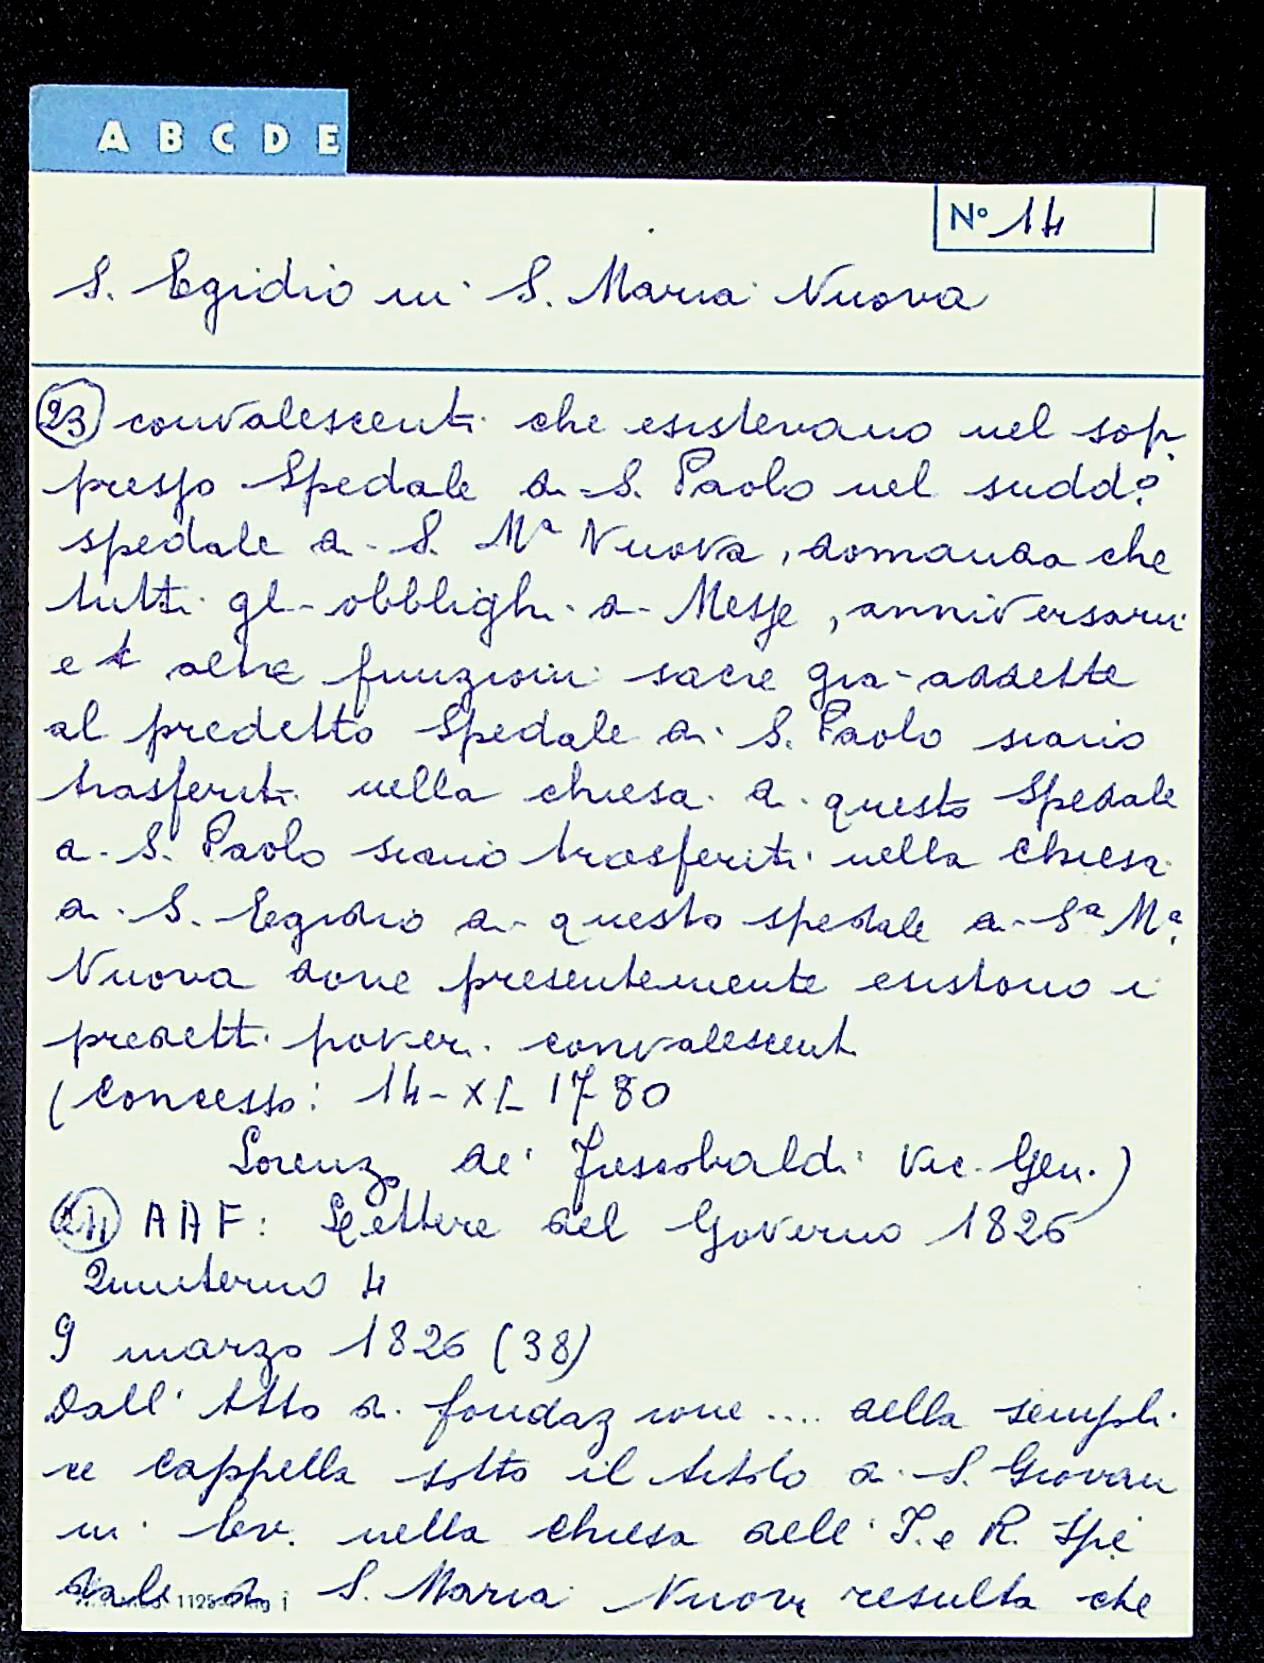 A B C D E
Nº 14
S. Egidio in S. Maria Nuova
(23) convalescenti che esistevano nel sop
presso Spedale di S. Paolo nel sudd.º
spedale di S. Mª Nuova, domanda che
tutti gl-obblighi di Messe, anniversari
et altre funzioni sacre gia-addette
al predetto Spedale di S. Paolo siano
trasferiti nella chiesa di questo Spedale
di S. Paolo siano trasferiti nella Chiesa
di S. Egidio di questo spedale di Sª Mª
Nuova dove presentemente esistono i
predetti poveri convalescenti
(Concesso: 14-XI-1780
Lorenzo de' Frescobaldi Vic. Gen.)
(24) AAF: Lettere del Governo 1826
Quinterno 4
9 marzo 1826 (38)
Dall' Atto di fondazione .... della sempli-
ce Cappella sotto il titolo di S. Giovan
ni Ev. nella Chiesa dell' I. e R. Spe
dale di S. Maria Nuova resulta che